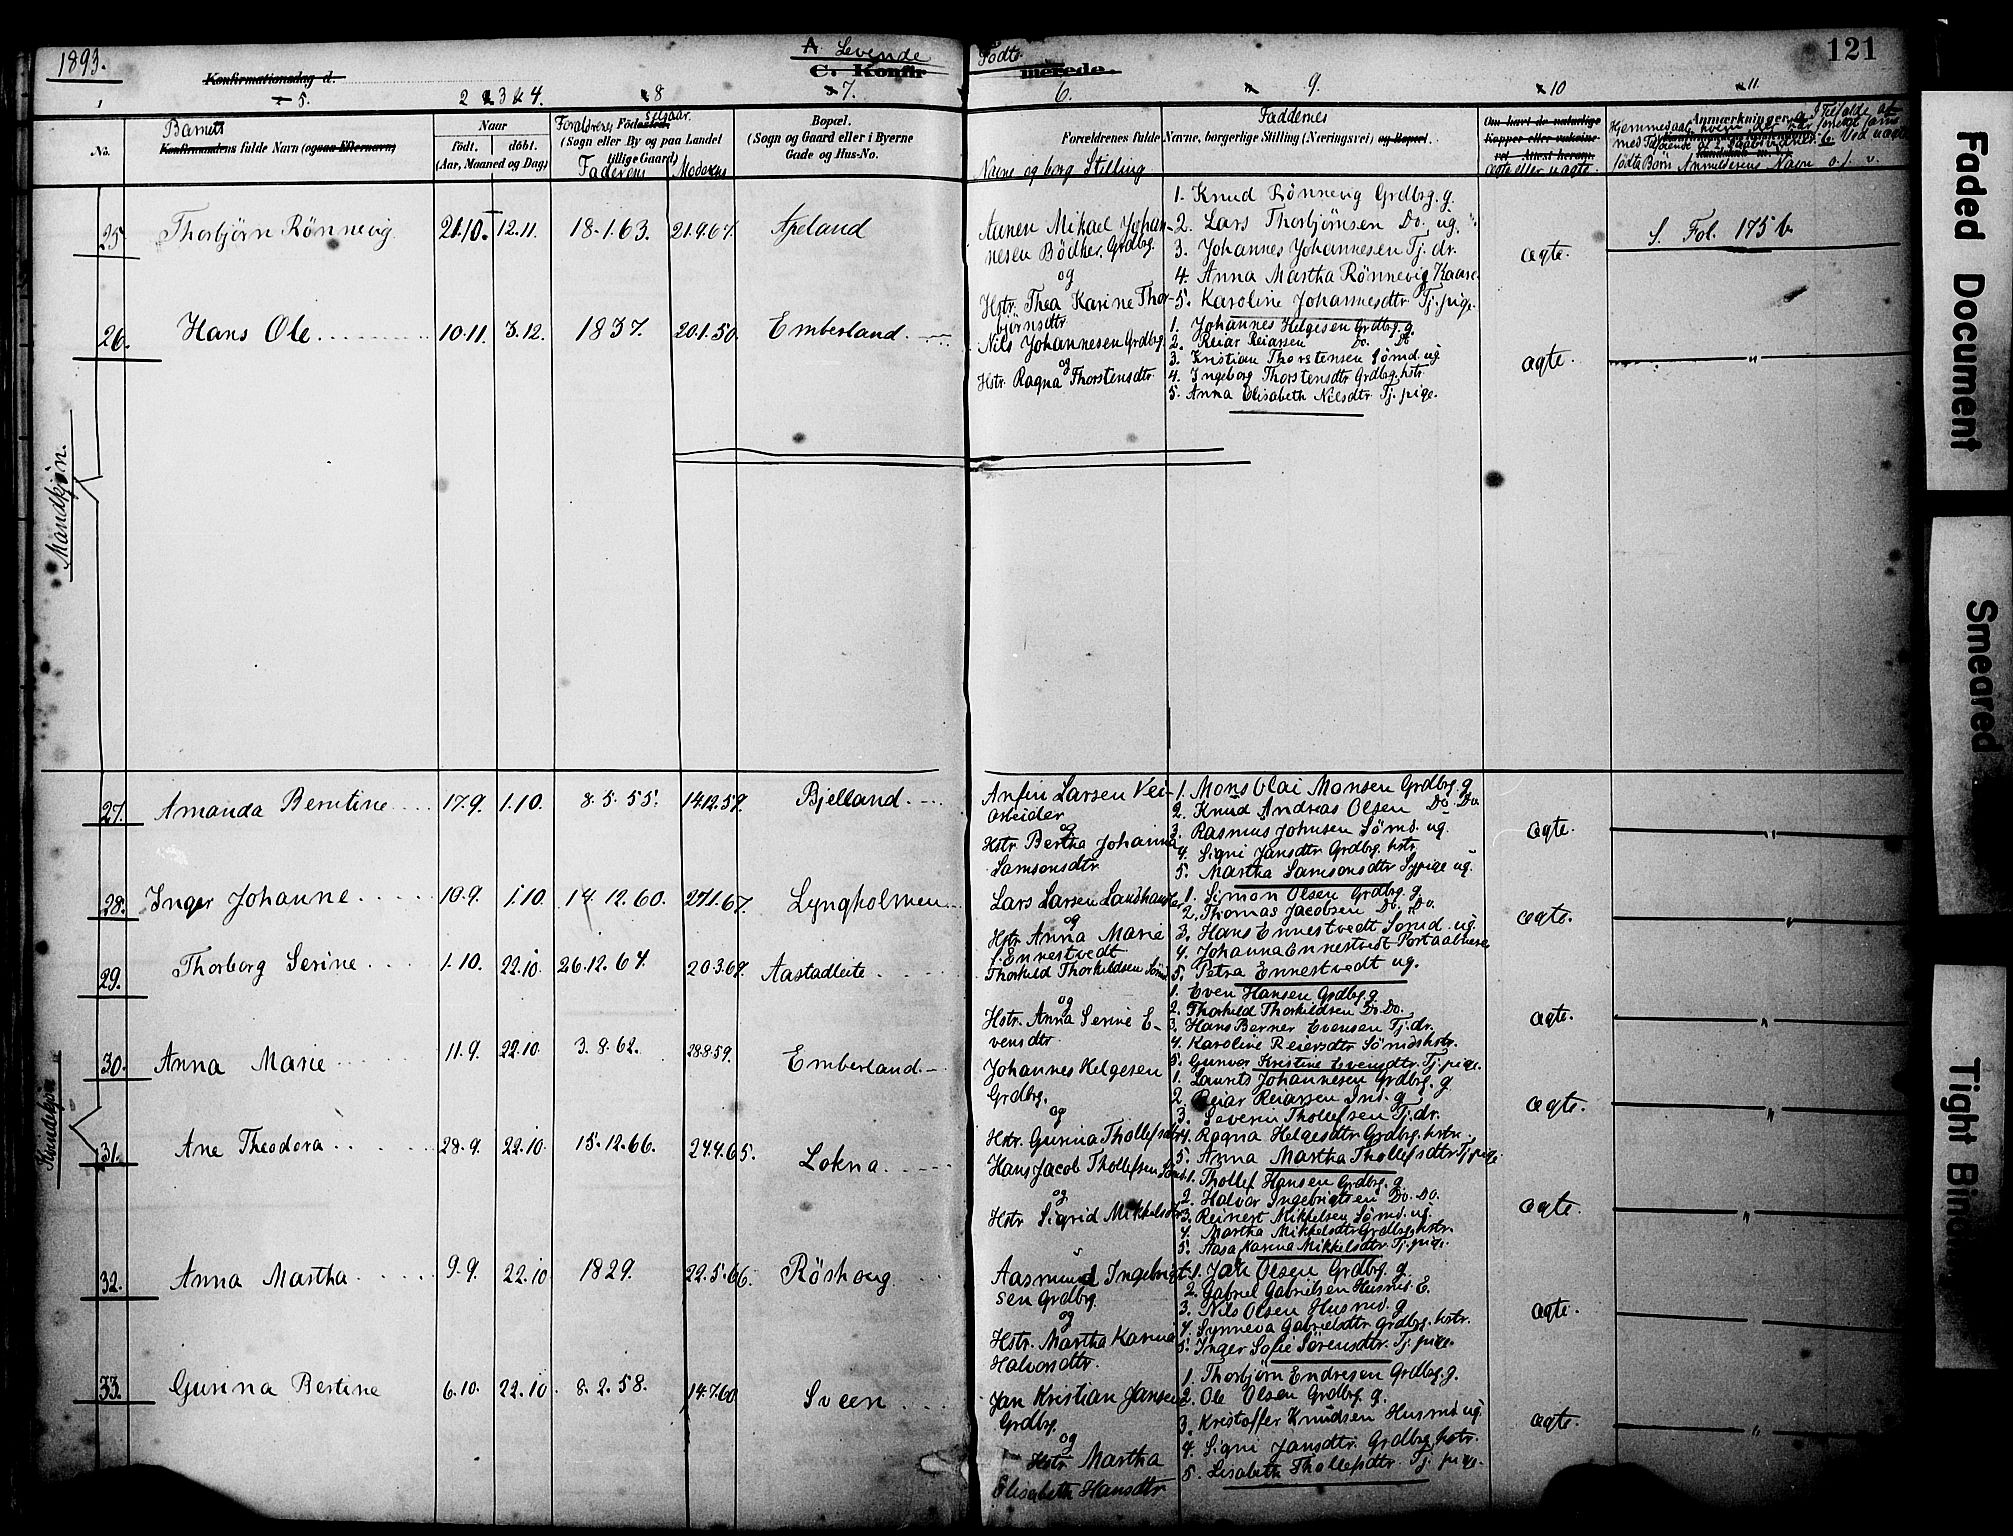 1893.
A Levende
Födte
121
Konfirmationsdag d.
C. Konfir
merede.
1
5.
2 3 4.
8
7.
6.
9.
10
11.
No.
Barnets
Konfirmandens fulde Navn (ogsaa Efternavn)
Naar
Födt.
döbt.
(Aar, Maaned og Dag)
Forældrens Fødested
(Sogn eller By og paa Landet
tillige Gaard)
Faderens
Moderens
Bopæl.
(Sogn og Gaard eller i Byerne
Gade og Hus-No.
Faddernes
Forældrenes fulde Navne, borgerlige Stilling (Næringsvei) og Bopæl.
Navne og borg Stilling
Om havt de naturlige
Kopper eller vaksine-
ret. Attest herom.
ægte eller uægte.
Anmærkninger.
Mandkjøn.
Kvindekjøn
25.
Thorbjørn Rönnevig
21.10.
12.11.
18.1.63.
21.9.67.
Apeland
Aanen Mikael Johan-
nesen Bödker, Grdbrg.
og
Hstr. Thea Karine Thor-
björnsdtr
1. Knud Rönnevig Grdbrg. g.
2. Lars Thorbjörnsen Do. ug.
3. Johannes Johannesen Tj. dr.
4. Anna Martha Rönnevig Kaare
5. Karoline Johannesdtr Tj. pige.
ægte.
S. Fol. 175 b.
26.
Hans Ole
10.11.
3.12.
1837.
20.1.50.
Emberland
Nils Johannesen Grdbrg.
og
Hstr. Ragna Thorstensdtr.
1. Johannes Helgesen Grdbrg. g.
2. Reiar Reiarsen Do. Do
3. Kristian Thorstensen Sömd. ug.
4. Ingeborg Thorstensdtr Grdbrg. hstr.
5. Anna Elisabeth Nilsdtr Tj. pige.
ægte.
"
27.
Amanda Berntine
17.9.
1.10.
8.5.55.
14.12.59.
Bjelland
Anfin Larsen Vei-
arbeider
og
Hstr. Bertha Johanna
Samsonsdtr
1. Mons Olai Monsen Grdbrg. g
2. Knud Andreas Olsen Do. Do
3. Rasmus Johnsen Sömd. ug.
4. Signi Jansdtr Grdbrg. hstr.
5. Martha Samsonsdtr Sypige ug.
ægte.
"
28.
Inger Johanne
10.9.
1.10.
14.12.60.
27.1.67.
Lyngholmen
Lars Larsen Landhandler
og
Hstr. Anna Marie
f. Ennestvedt
1. Simon Olsen Grdbrg. g.
2. Thomas Jacobsen Do. Do.
3. Hans Ennestvedt Sömd. ug.
4. Johanna Ennestvedt Postaabnerske
5. Petra Ennestvedt ug.
ægte.
"
29.
Thorborg Serine
1.10.
22.10.
26.12.64.
20.3.69.
Aastadleite
Thorkild Thorkildsen Sömd
og
Hstr. Anna Serine E-
vensdtr
1. Even Hansen Grdbrg. g
2. Thorkild Thorkildsen Do. Do.
3. Hans Berner Evensen Tj. dr.
4. Karoline Reiersdtr Sömdshstr.
5. Gunvor Kristine Evensdtr. Tj. pige.
ægte.
"
30.
Anna Marie
11.9.
22.10.
3.8.62.
28.8.59.
Emberland
Johannes Helgesen
Grdbrg.
og
Hstr. Gurina Thollefsdtr
1. Laurits Johannesen Grdbrg. g
2. Reiar Reiarsen Ind. g
3. Severin Thollefsen Tj. dr.
4. Ragna Helgesdtr Grdbrg. hstr.
5. Anna Martha Thollefsdtr Tj. pige
ægte.
"
31.
Ane Theodora
28.9.
22.10.
15.12.66.
24.4.65.
Lokna
Hans Jacob Thollefsen Sömd.
og
Hstr. Sigrid Mikkelsdtr
1. Thollef Hansen Grdbrg. g.
2. Halvor Ingebrigtsen Do. Do.
3. Reinert Mikkelsen Sömd. ug.
4. Martha Mikkelsdtr Grdbrg. hstr.
5. Aasa Karina Mikkelsdtr. Tj. pige.
ægte.
"
32.
Anna Martha
9.9.
22.10
1829.
22.5.66.
Röshoug
Aasmund Ingebrigt-
sen Grdbrg.
og
Hstr. Martha Karina
Halvorsdtr.
1. Jan Olsen Grdbrg. g
2. Gabriel Gabrielsen Husmd. E.
3. Nils Olsen Husmd. g
4. Synneva Gabrielsdtr Grdbrg. hstr.
5. Inger Sofie Sörensdtr. Tj. pige.
ægte.
"
33.
Gurina Bertine
6.10.
22.10
8.2.58.
14.7.60
Sveen
Jan Kristian Jansen
Grdbrg.
og
Hstr Martha
Elisabeth Hansdtr
1. Thorbjörn Endresen Grdbrg. g.
2. Ole Olsen Grdbrg. g.
3. Kristoffer Knudsen Husmd ug.
4. Signi Jansdtr. Grdbrg. hstr.
5. Lisabeth Thollefsdtr. Tj. pige.
ægte.
"
Faded Document
Smeared
Tight Bin